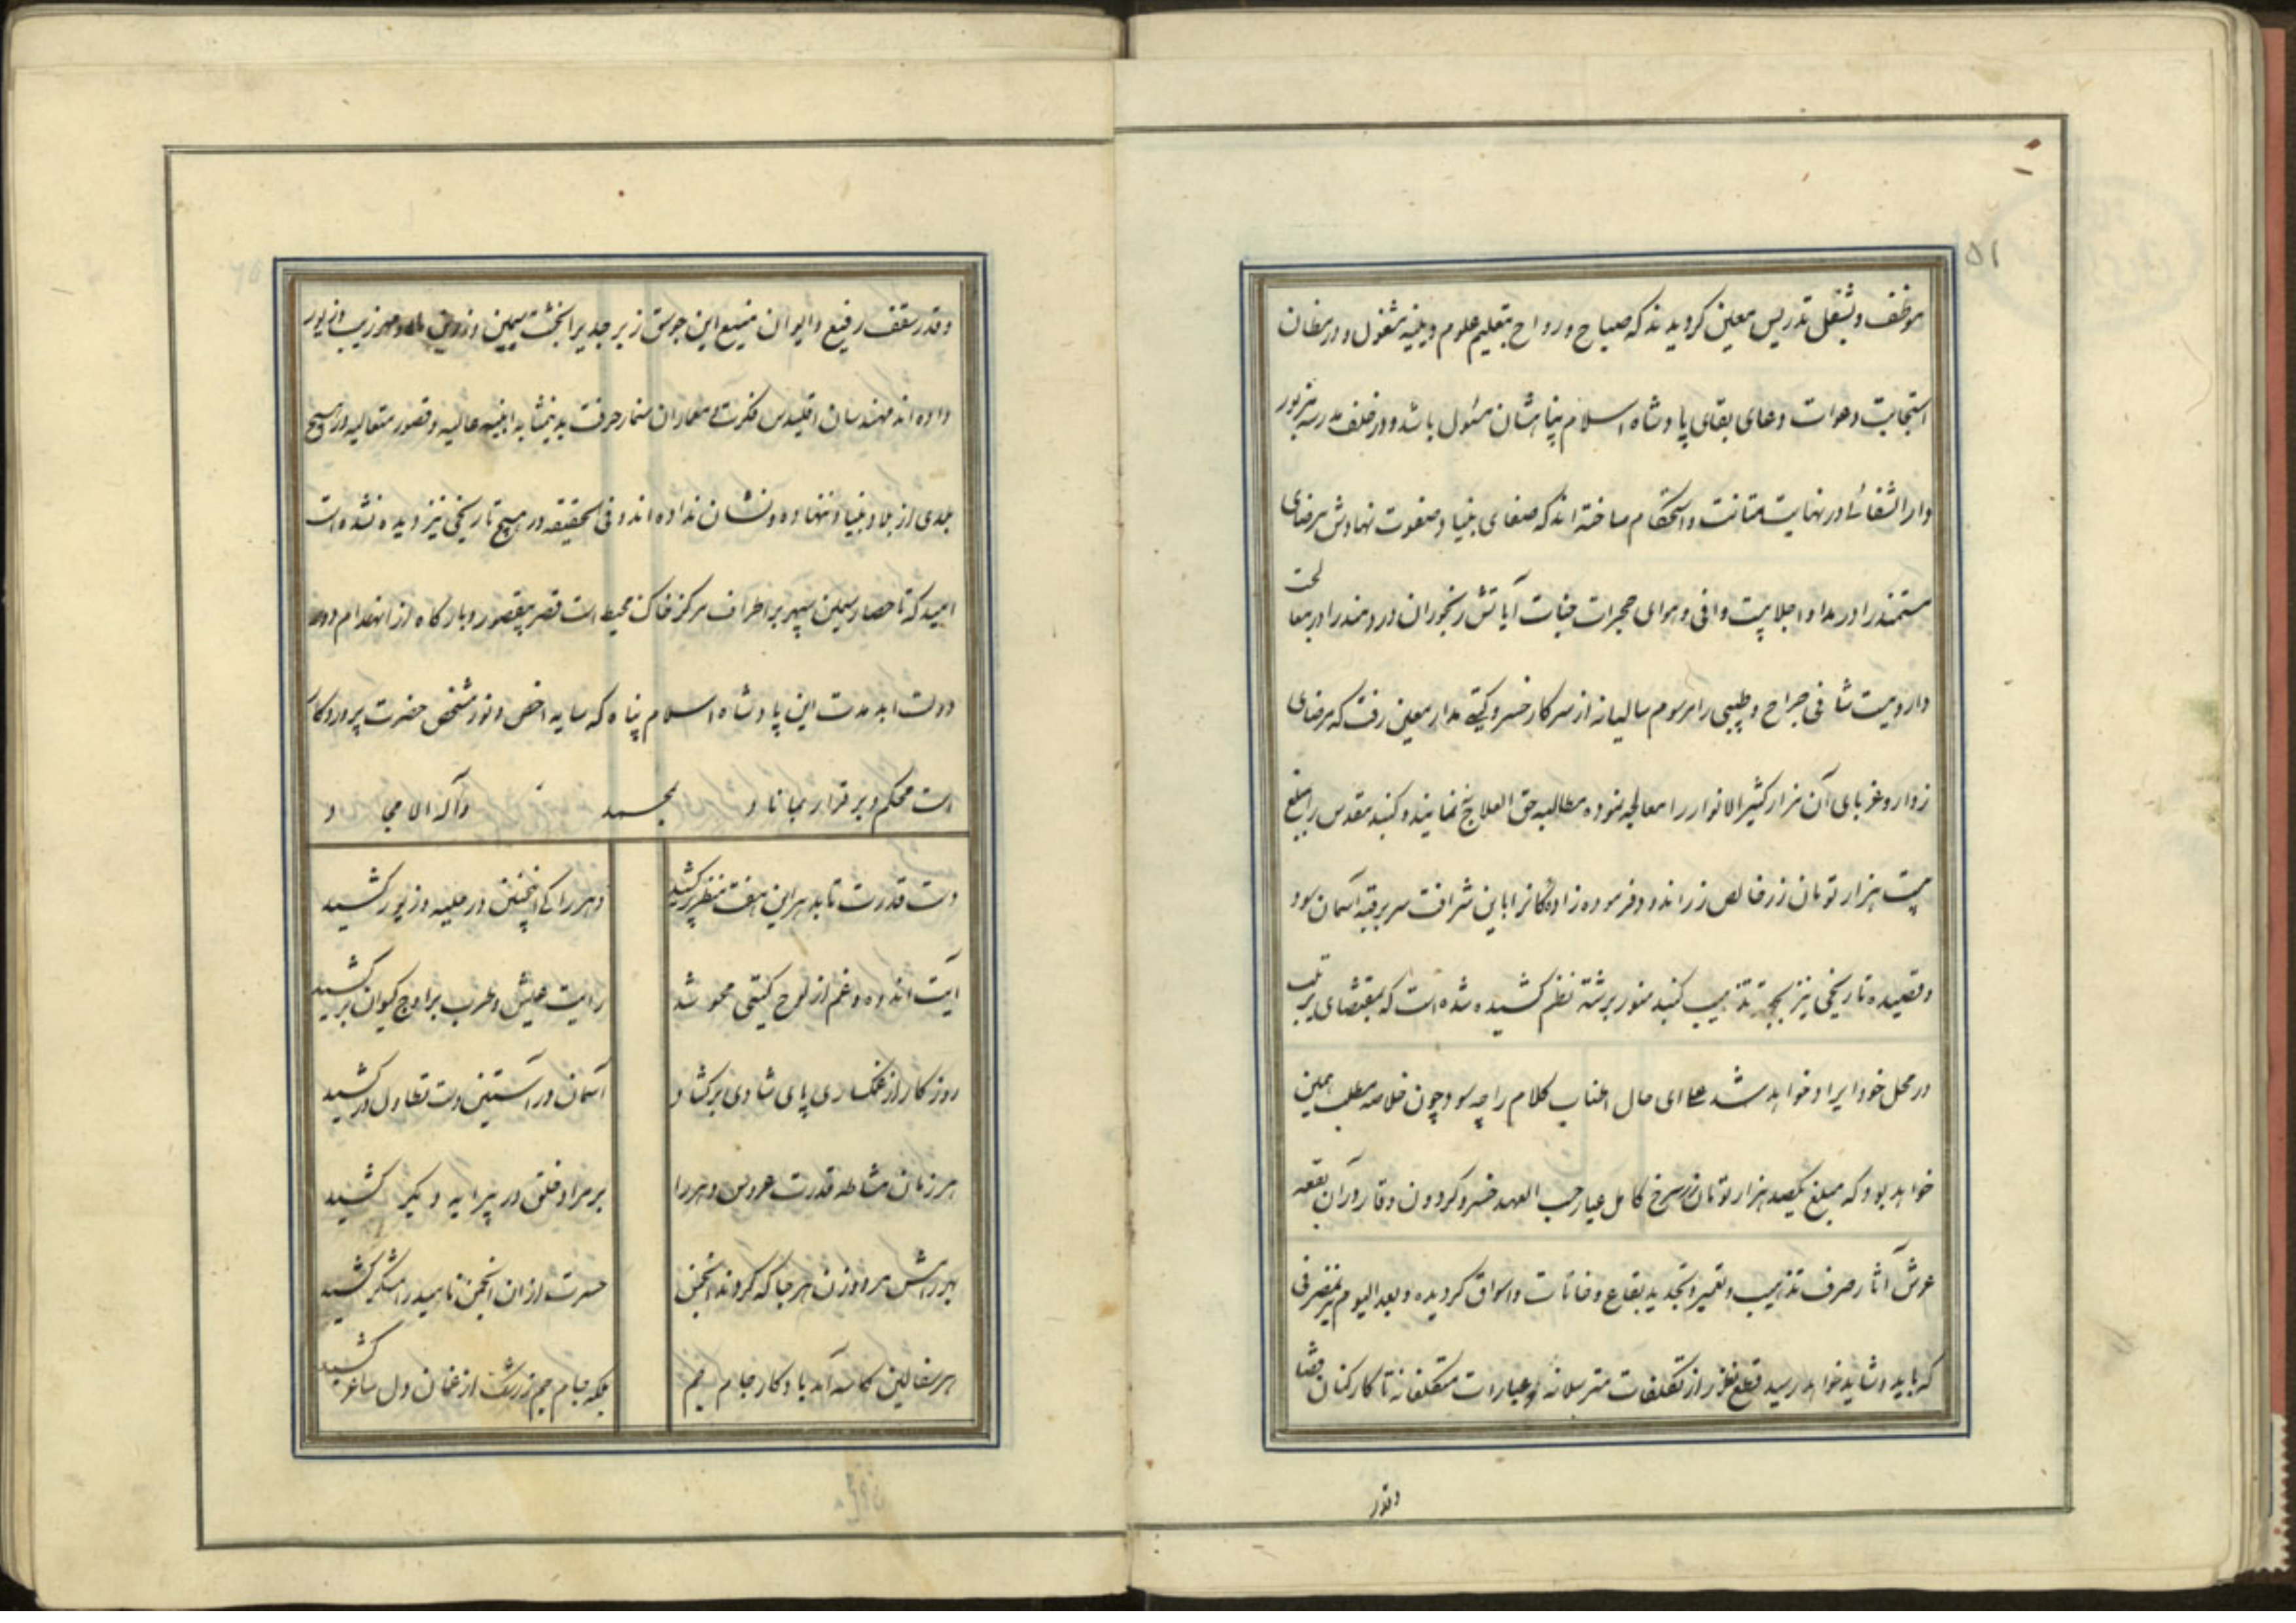 ۵۱
موظف و بشغل تدریس معین کردیدند که صباح و رواح بتعلیم علوم دینیه مشغول و در مظان
استجابت دعوات دعای بقای پادشاه اسلام پناهشان مسئول باشد و در خلف مدرسه مزبور
دار الشفائی در نهایت متانت و استحکام ساخته اند که صفای بنیاد صفوت نهادش مرضای
مستمند را در مداوا جلابیت وافی و هوای حجرات جنات آیاتش رنجوران دردمند را در معالجت
داروییت شافی جراح و طبیبی را مرسوم سالیانه از سرکار خسرو کیتی مدار معین رفت که مرضای
زوار و غربای آن مزار کثیر الانوار را معالجه نموده مطالبه حق العلاج نمایند و کنبد مقدس را بمبلغ
بیست هزار تومان زر خالص زراندود فرموده زاده کانرا باین شرافت سر بر قبه آسمان سود
و قصیده تاریخی نیز بجهة تذهیب کنبد منور برشته نظم کشیده شده است که بمقتضای ترتیب
در محل خود ایراد خواهد شد علی ای حال اطناب کلام را چه سود چون خلاصه مطلب همین
خواهد بود که مبلغ یکصد هزار تومان زر سرخ کامل عیار حسب العهد خسرو کردون وقار در آن بقعه
عرش آثار صرف تذهیب و تعمیر و تجدید بقاع و خانات و اسواق کردیده و بعد الیوم نیز بمصرفی
که باید و شاید خواهد رسید قطع نظر از تکلفات مترسلانه و عبارات متکلفانه تا کارکنان قضا
وقدر
وقدر سقف رفیع و ایوان منیع این جوسق زبرجد یرا بخشت سیمین و زرین ماه و مهر زیب و زیور
داده اند مهندسان اقلیدس فکرت و معماران سنمار حرفت بدینمثابه ابنیه عالیه و قصور متعالیه در هیچ
بلدی از بلاد بنیاد ننهاده و نشان نداده اند و فی الحقیقه در هیچ تاریخی نیز دیده نشده است
امید که تا حصار سیمین سپهر بر اطراف مرکز خاک محیط است قصر بیقصور و بارکاه از انهدام دور
دولت ابد مدت این پادشاه اسلام پناه که سایه اخص و نور مشخص حضرت پروردکار
است محکم و برقرار بماناد بمحمد وآله الامجاد
دست قدرت تا بدهر این هفت منظر بر کشید
دهر را کی اینچنین در حلیه و زیور کشید
آیت اندوه و غم از لوح کیتی محو شد
رایت عیش و طرب بر اوج کیوان بر کشید
روزکار از غمکساری پای شادی بر کشاد
آسمان در آستین دست تطاول در کشید
هر زمان مشاطه قدرت عروس دهر را
بر مراد خلق در پیرایه دیکر کشید
بهر رامش مرد و زن هر جا که کردند انجمن
حسرت از ان انجمن ناهید رامشکر کشید
هر سفالین کاسه آمد یادکار جام جم
بلکه جام جم ز رشک از غمان دل ساغر کشید